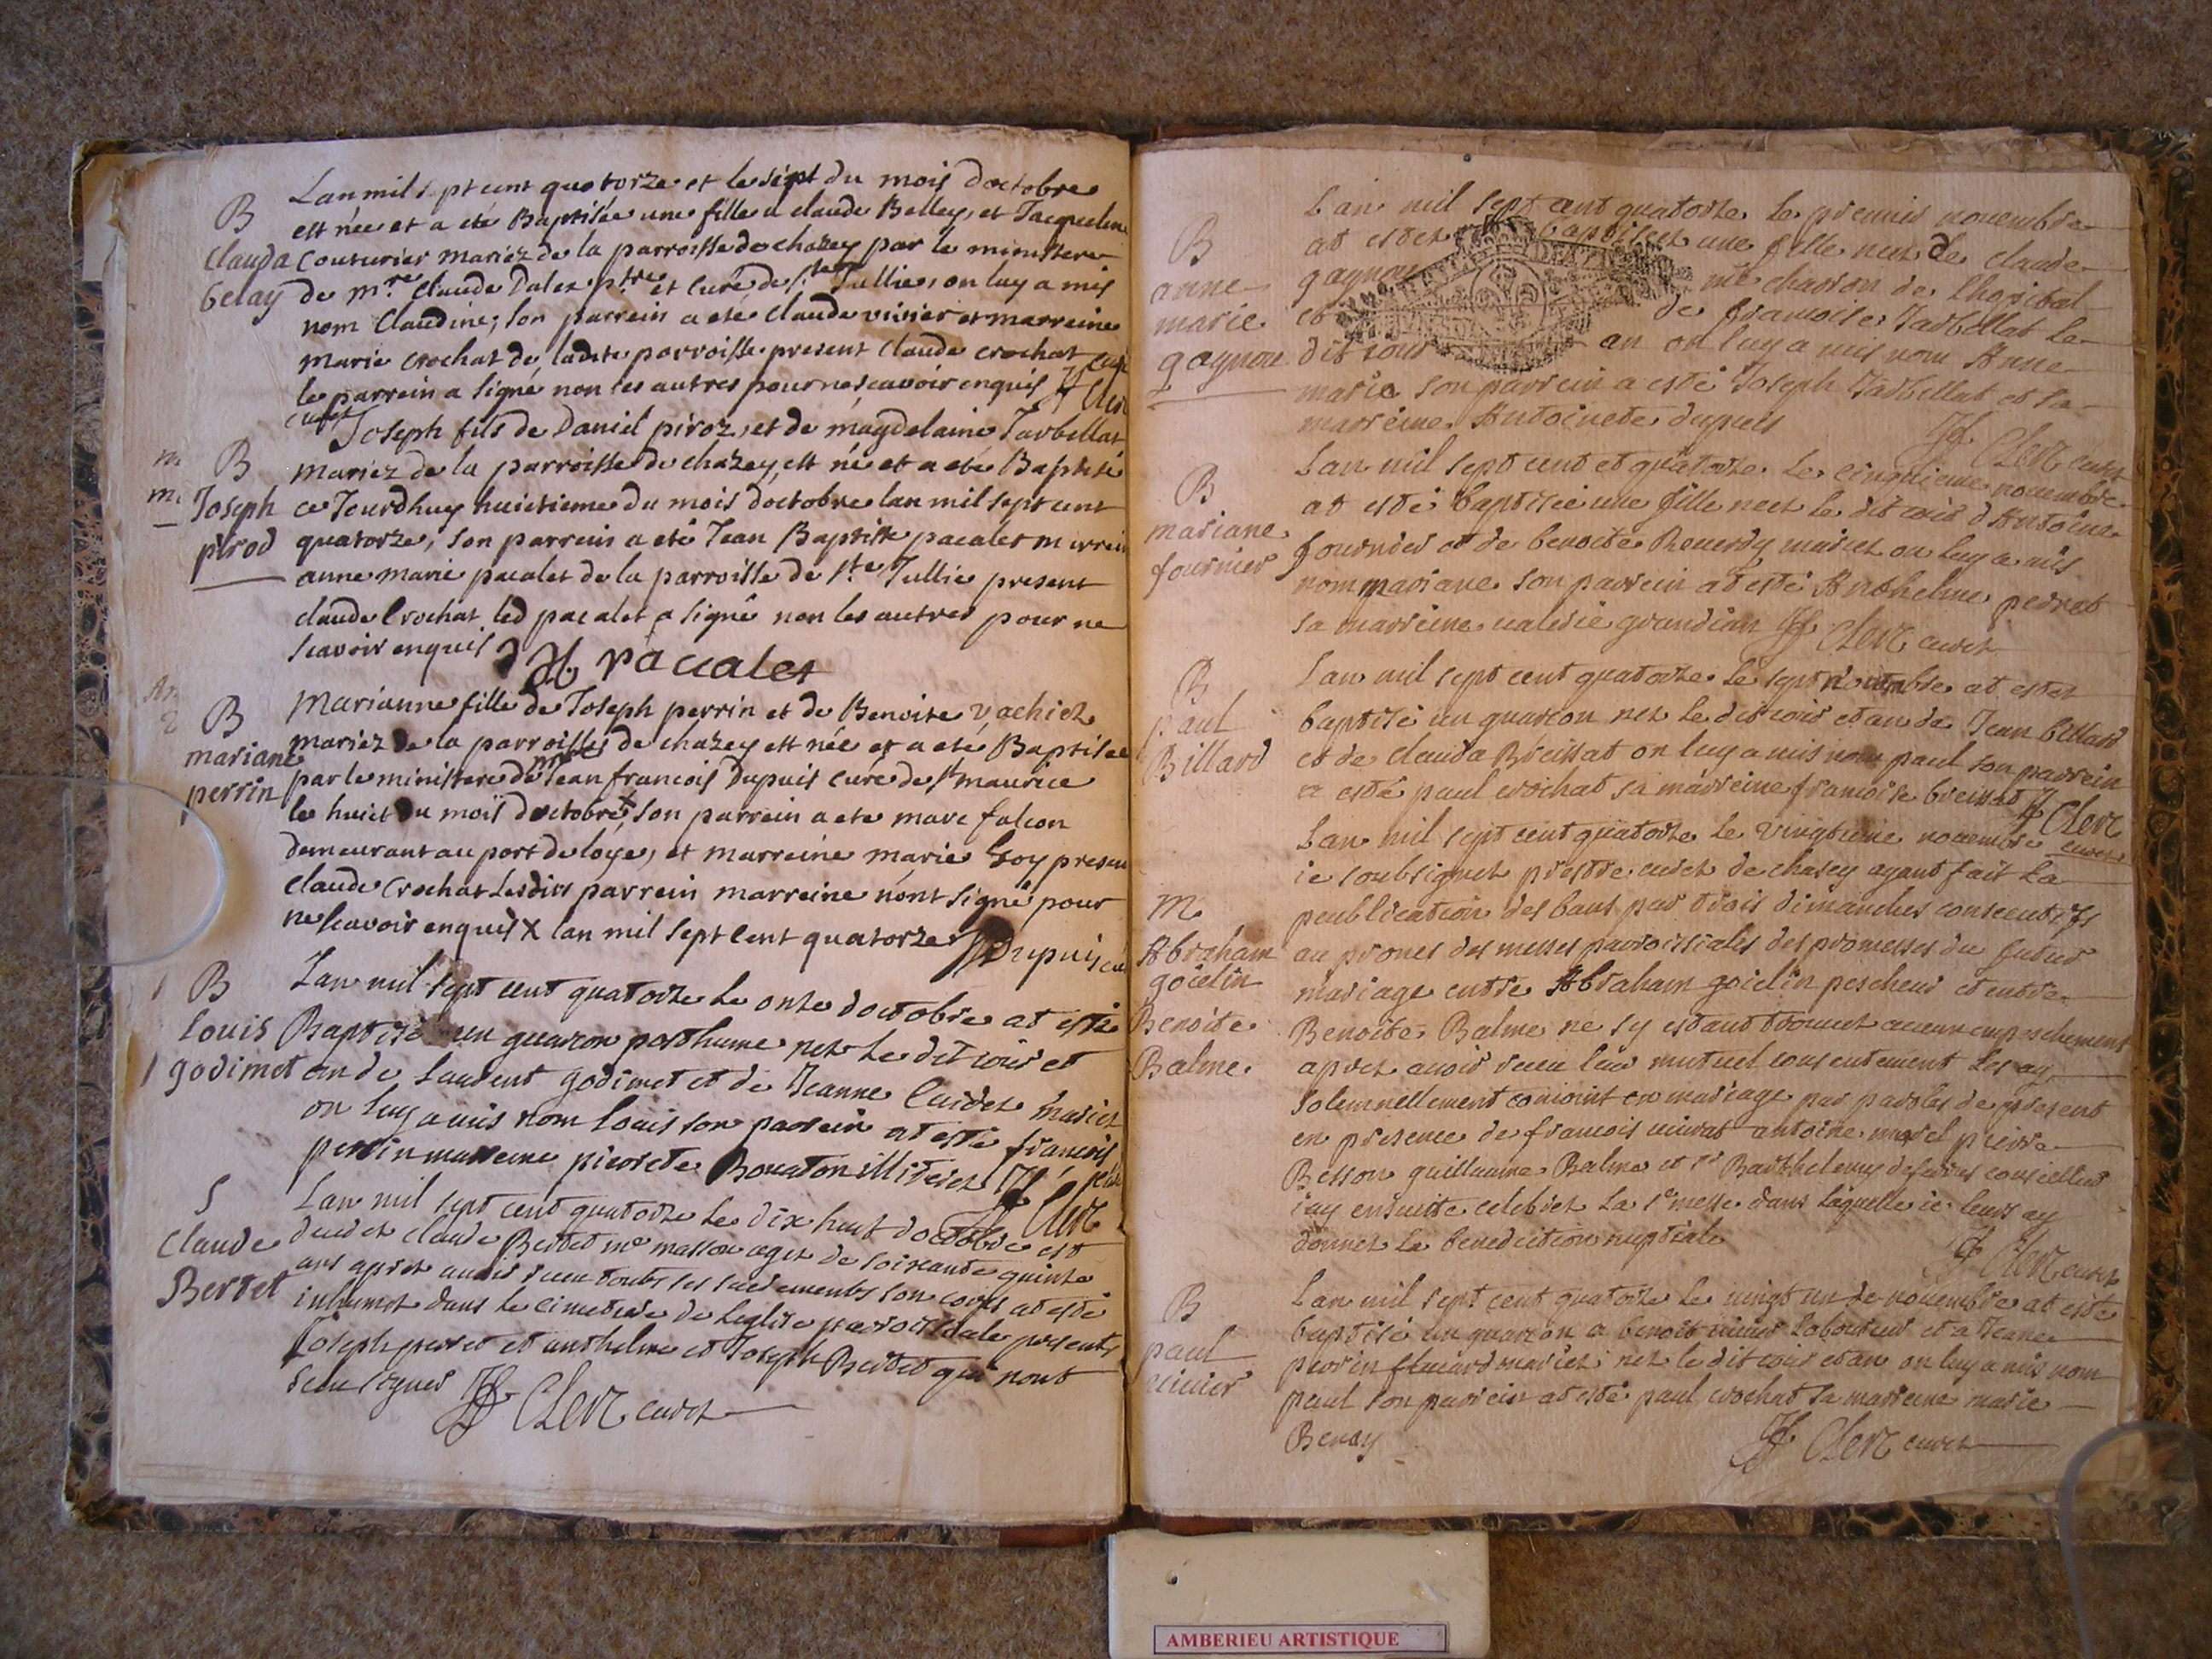 Lan mil sept cent quatorze et le sept du mois doctobre
B
est née et a eté Baptisée une fille a claude Belley, et Jacqueline
Clauda
couturier mariéz de la parroisse de chazey par le ministere
belay
de mre Claude Dalex ptre et curé de ste Jullie, on luy a mis
nom Claudine; son parrein a eté Claude vivier et marreine
marie crochat de ladite parroisse present Claude crochat
le parrein a signé non les autres pour ne scavoir enquis
Clerc
curet
Joseph fils de Daniel piroz, et de magdelaine Tarbellat
B
mariez de la parroisse de chazey, est né et a eté Baptisé
Joseph
ce Jourdhuy huictieme du mois doctobre lan mil sept cent
pirod
quatorze, son parrein a eté Jean Baptiste pacalet marreine
anne marie pacalet de la parroisse de ste Jullie present
claude Crochat led pacalet a signé non les autres pour ne
scavoir enquis
paccalet
Marianne fille de Joseph perrin et de Benoite vachiez
B
mariez de la parroisse de chazey est née et a eté Baptisée
mariane
par le ministere de mre Jean francois Dupuis curé de st maurice
perrin
le huict du mois doctobre, son parrein a ete marc falcon
demeurant au port de loye, et marreine marie Goy present
Claude Crochat Lesdits parrein marreine nont signé pour
ne scavoir enquis X lan mil sept cent quatorze
Dupuis
B
Lan mil sept cent quatorze le onze doctobre at esté
louis
Baptisé un guarcon posthume nez le dit iour et
godimet
an de laurent godimet et de Jeanne Cuidet mariez
on luy a mis nom louis son parrein at esté francois
perrin marreine pierrete Bouaton illiterez
Clerc
S
Lan mil sept cent quatorze le dix huit doctobre est
Claude
decedez claude Bertet me masson agez de soixante quinze
Bertet
ans aprez auoir receu touts ses sacrements son corps at esté
inhumez dans le cimetiere de leglise parroissiale presents
Joseph perret et anthelme et Joseph Bertet qui nont
sceu signer
Clerc curez
Lan mil sept cent quatorze le premier novembre
B
at estez baptisez une fille nee de claude
anne
gagnon me charon de lhospital
marie
et de francoise Tarbellat le
gagnon
dit iour an on luy a mis nom Anne
marie son parrein a esté Joseph Tarbellat et sa
marreine Antoinete dupuis
Clerc curez
Lan mil sept cent et quatorze le cinquieme nouembre
B
at esté baptisée une fille neez le dit iour d Antoine
mariane
fournier et de benoite Reuerdy mariez on luy a mis
fournier
nom mariane son parrein at esté Anthelme perret
sa marreine ualerie grandian Clerc curez
B
Lan mil sept cent quatorze le sept nouembre at estez
paul
baptisé un guarcon nez le dit iour et an de Jean billard
Billard
et de clauda Breissat on luy a mis nom paul son parrein
a esté paul crochat sa marreine francoise breissat
Clerc
curez
Lan mil sept cent quatorze le vingtieme nouembre
ie soubsignez prestre curez de chasey ayant fait la
M
peublication des bans par trois dimanches consecutifs
Abraham
au prones des messes parroissiales des promesses du futur
goielin
mariage entre Abraham goielin pescheur et entre
Benoite
Benoite Balme ne sy estant trouuez aucun empeschement
Balme
aprez auoir receu leur mutuel consentement les ay
solemnellement conioint en mariage par paroles de present
en presence de francois uiuras antoine morel pierre
Besson guillaume Balme et sr Barthelemy defarges conseiller
iay ensuitte celebrez la ste messe dans laquelle ie leurs ay
donnez la benediction nuptiale
Clerc curez
B
Lan mil sept cent quatorze le uingt un de nouembre at esté
paul
baptisé un guarcon a benoit uiuier laboureur et a Jeanne
uiuier
perrin mariez nez le dit iour et an on luy a mis nom
paul son parrein at esté paul crochat sa marreine marie
Benay
Clerc curez
AMBERIEU ARTISTIQUE